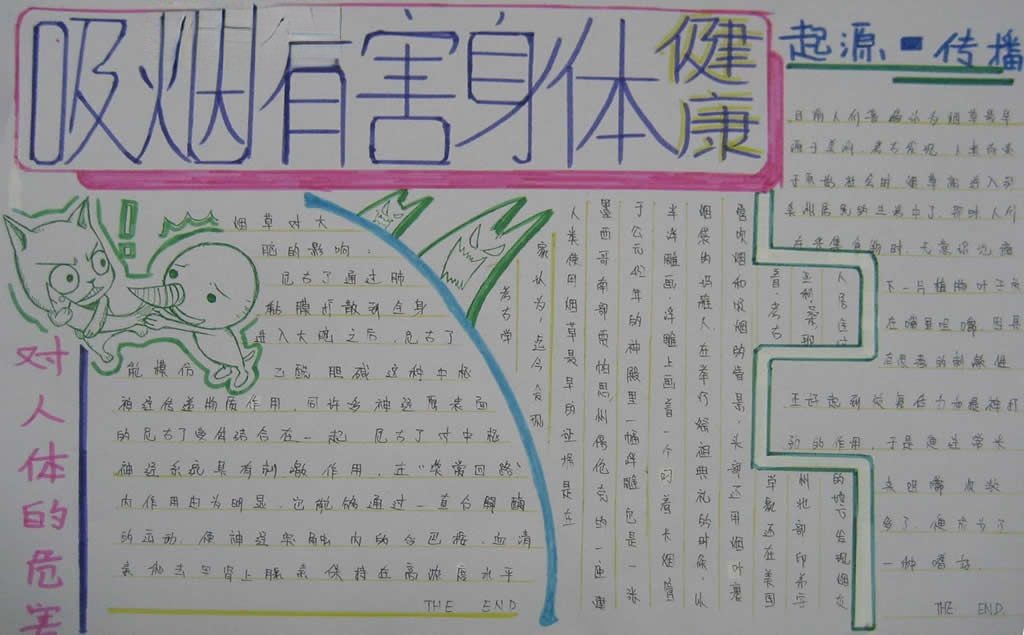 吸烟有害身体健康
起源、传播
对人体的危害
烟草对大
脑的影响：
尼古丁通过肺
黏膜扩散到全身
进入大脑之后，尼古丁
能模仿 乙酰胆碱这种中枢
神经传递物质作用，同许多神经元表面
的尼古丁受体结合在一起 尼古丁对中枢
神经系统具有刺激作用，在“奖赏回路”
内作用由为明显，它能够通过一直合酶
的活动，使神经突触内的多巴胺，血清
素和去甲肾上腺素保持在高浓度水平
THE END
考古学
家认为，迄今发现
人类使用烟草最早的证据是在
墨西哥南部贾帕思州倍伦克的一座建
于公元432年的神殿里一幅浮雕 它是一张
半浮雕画，浮雕上画着一个叼着长烟管
烟袋的玛雅人，在举行祭祖典礼的时候，以
管吹烟和吸烟的情景，头部还用烟叶裹
着，考古
草数还在美国
州北部印第安
人居住过
的地下发现烟
目前人们普遍认为烟草最早
源于美洲，考古发现，人类尚
于原始社会时，烟草就进入到
美洲居民的生活中了，那时，人们
在采集食物时，无意识地摘
下一片植物叶子放
在嘴里咀嚼，因其
在很强的刺激性
正好起到恢复体力和提神打
劲的作用，于是便经常
来咀嚼，次数
多了，便成为了
一种嗜好。
THE END.